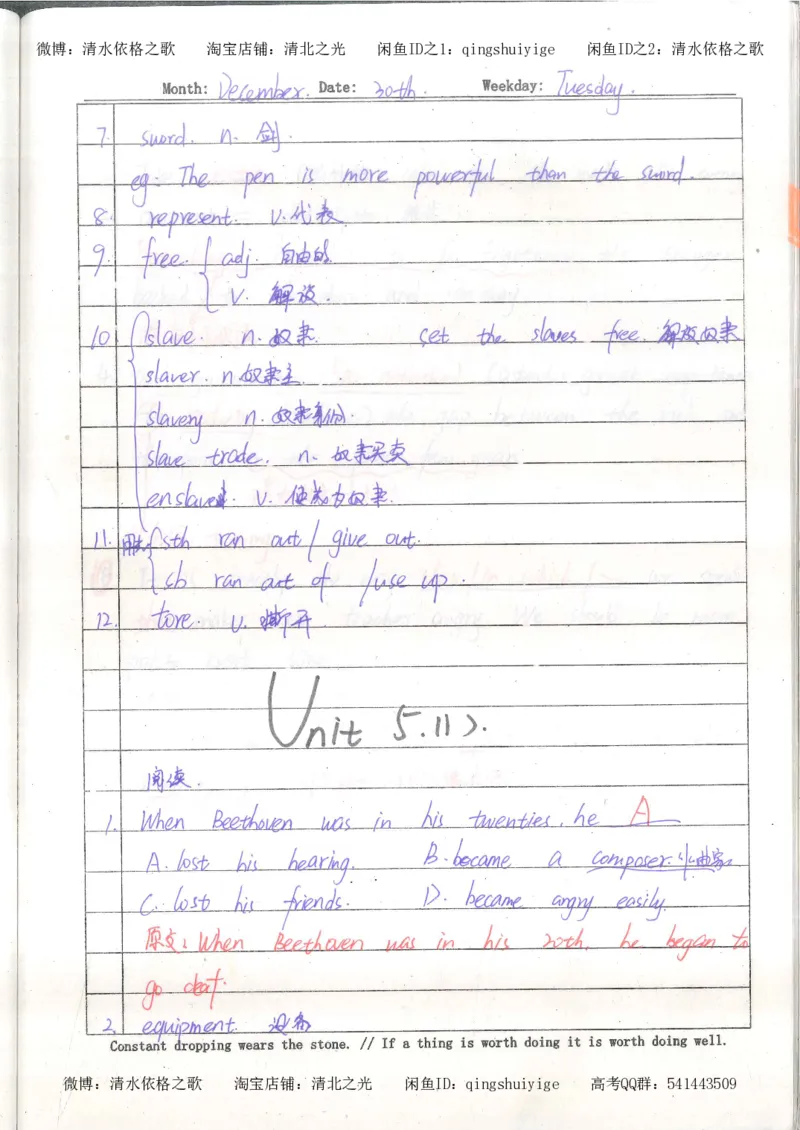 微博：清水依格之歌 淘宝店铺：清北之光 闲鱼ID之1：qingshuiyige 闲鱼ID之2：清水依格之歌
Month: December. Date: 30th. Weekday: Tuesday.
7. sword. n. 剑.
eg: The pen is more powerful than the sword.
8. represent. v.代表
9. free. { adj. 自由的
v. 解放
10 { slave. n. 奴隶. set the slaves free. 解放奴隶
slaver. n.奴隶主.
slavery n. 奴隶身份.
slave trade. n. 奴隶买卖
enslave. v. 使成为奴隶.
11. 用光 { sth ran out / give out.
sb ran out of / use up.
12. tore. v. 撕开
Unit 5.(1).
阅读.
1. When Beethoven was in his twenties, he A
A. lost his hearing. B. became a composer. 作曲家
C. lost his friends. D. became angry easily.
原文: When Beethoven was in his 20th, he began to
go deaf.
2. equipment 设备
Constant dropping wears the stone. // If a thing is worth doing it is worth doing well.
微博：清水依格之歌 淘宝店铺：清北之光 闲鱼ID：qingshuiyige 高考QQ群：541443509